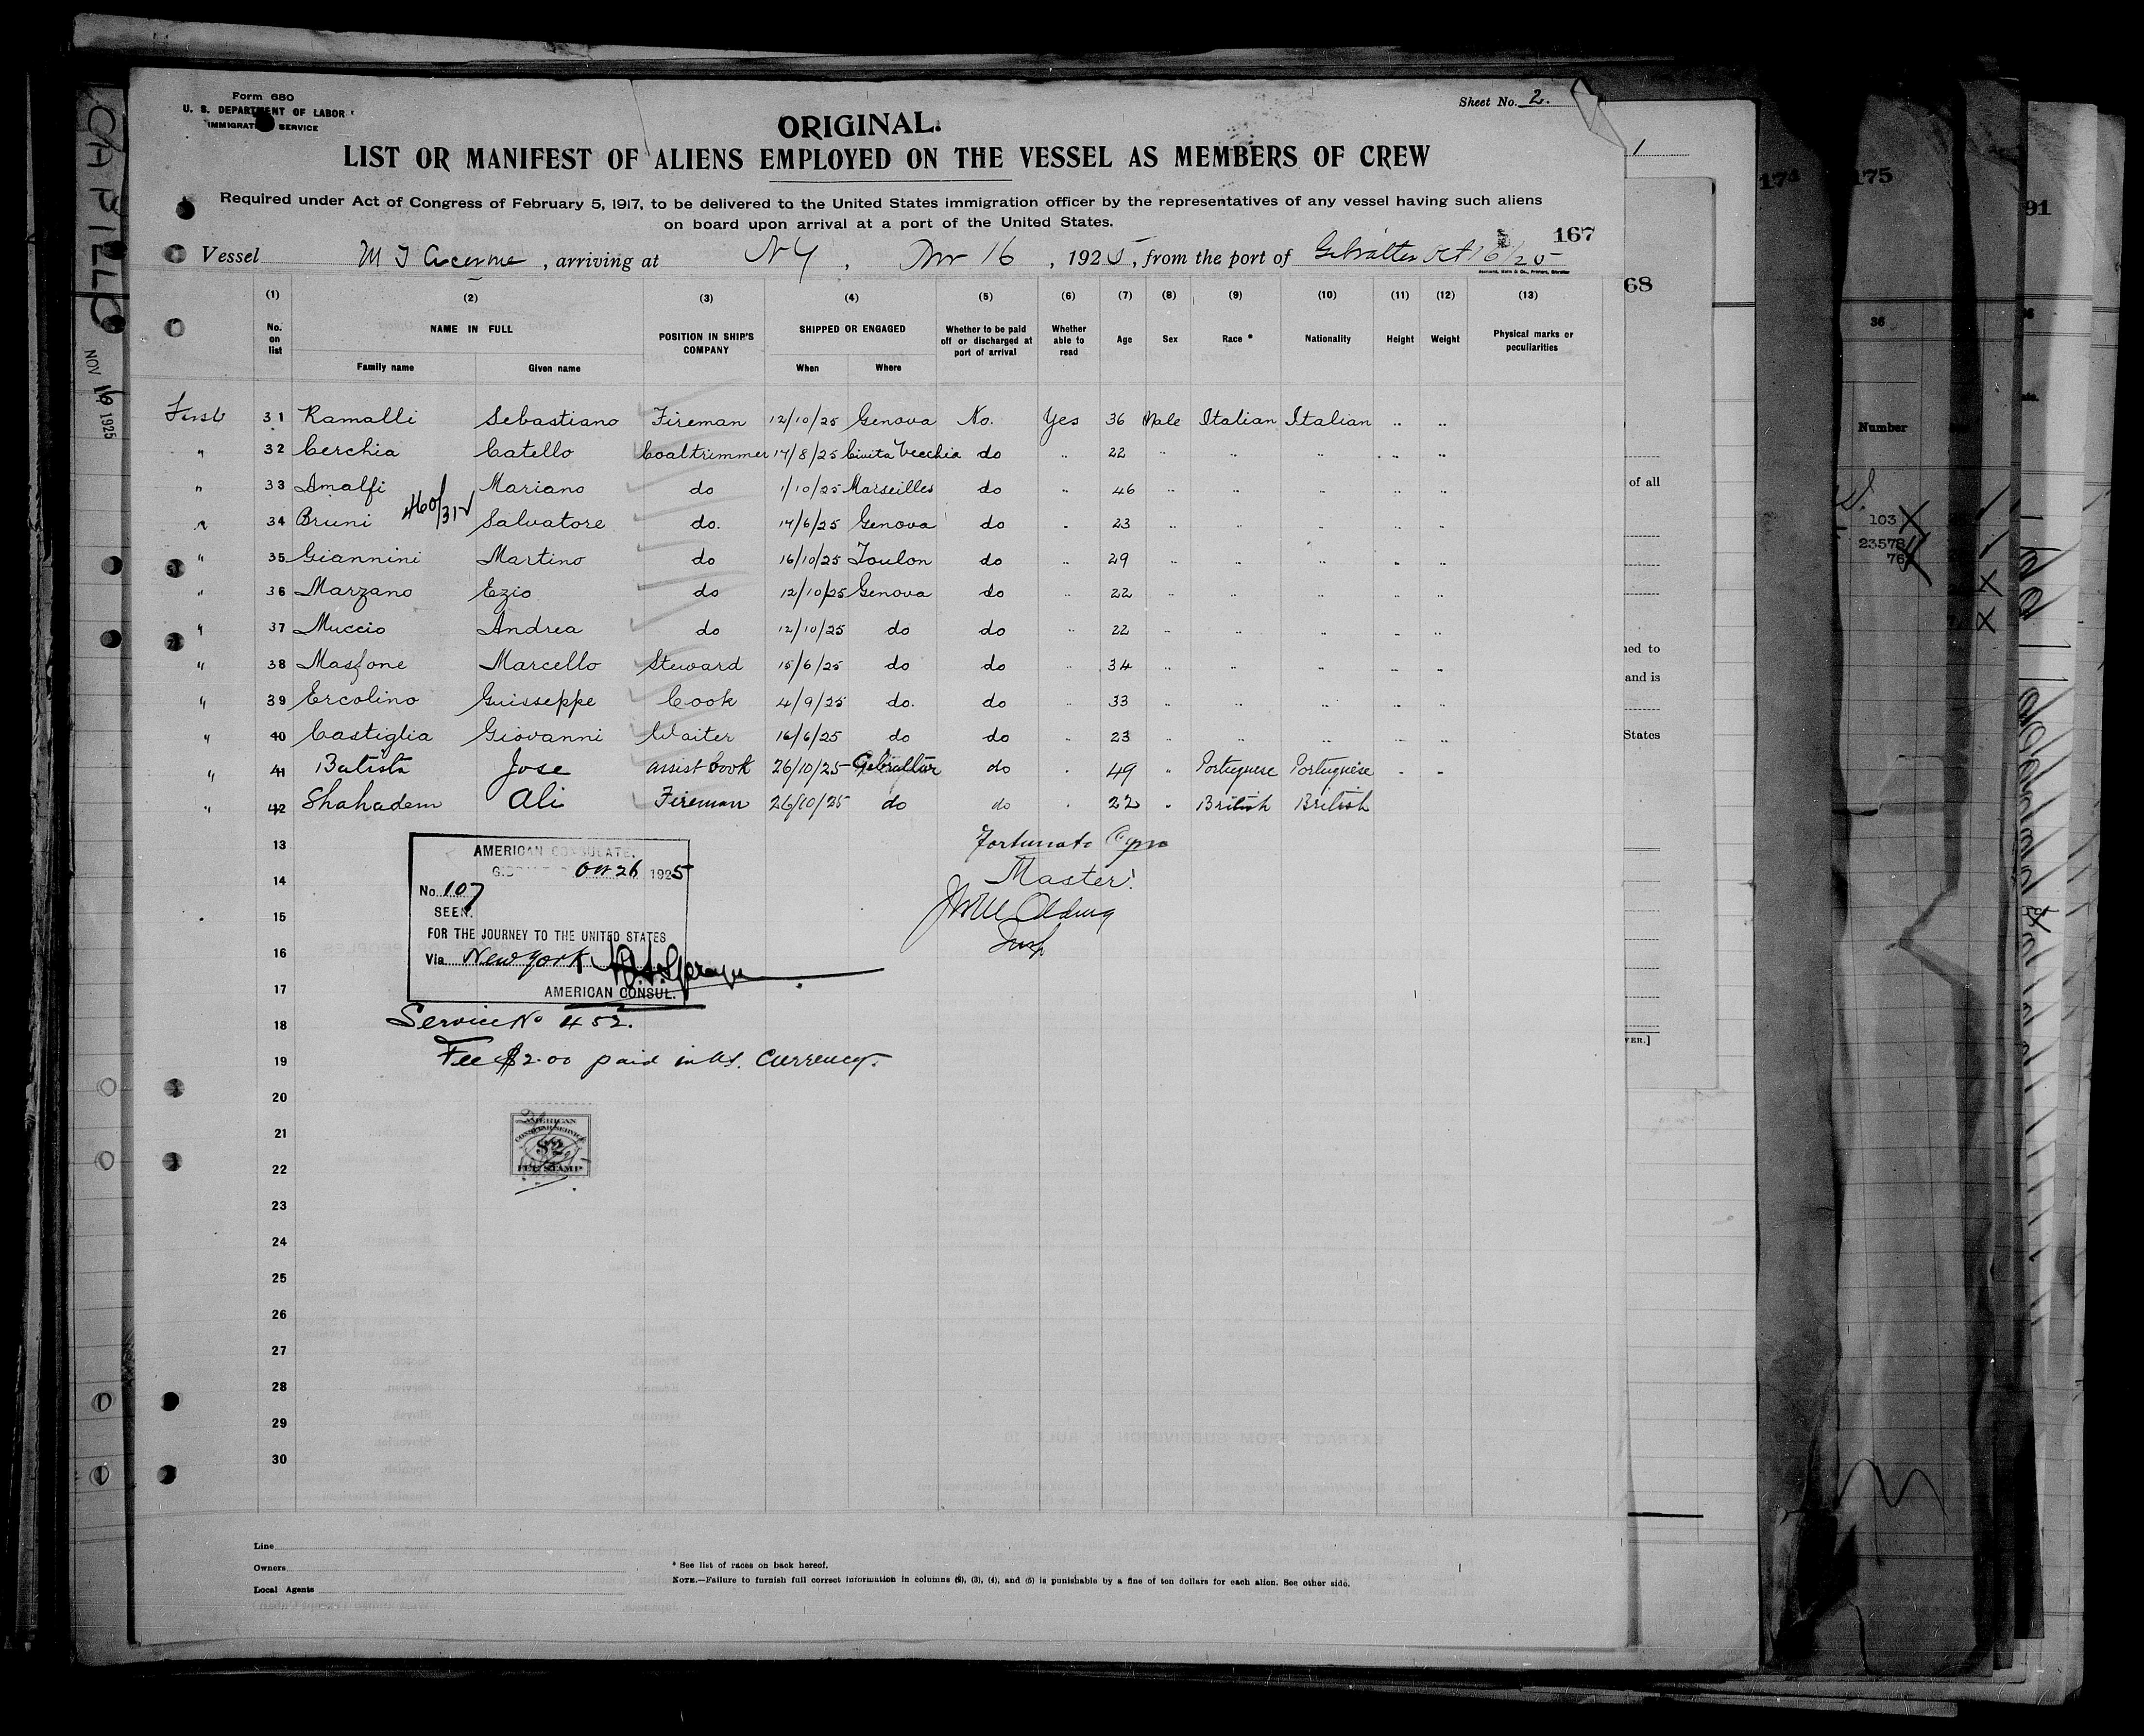 Form 680
U. S. DEPARTMENT OF LABOR
IMMIGRATION SERVICE
Sheet No. 2.
ORIGINAL.
LIST OR MANIFEST OF ALIENS EMPLOYED ON THE VESSEL AS MEMBERS OF CREW
Required under Act of Congress of February 5, 1917, to be delivered to the United States immigration officer by the representatives of any vessel having such aliens
on board upon arrival at a port of the United States.
167
Vessel , arriving at N Y , Nov 16 , 1925, from the port of Gibralter Oct
(1) (2) (3) (4) (5) (6) (7) (8) (9) (10) (11) (12) (13)
No. on list NAME IN FULL POSITION IN SHIP'S COMPANY SHIPPED OR ENGAGED Whether to be paid off or discharged at port of arrival Whether able to read Age Sex Race * Nationality Height Weight Physical marks or peculiarities
Family name Given name When Where
First 31 Ramalli Sebastiano Fireman 12/10/25 Genova No. Yes 36 Male Italian Italian " "
" 32 Cerchia Catello Coaltrimmer 17/8/25 Civita Vecchia do " 22 " " " " "
" 33 Amalfi Mariano do 1/10/25 Marseilles do " 46 " " " " "
460/31
" 34 Bruni Salvatore do. 14/6/25 Genova do " 23 " " " " "
" 35 Giannini Martino do 16/10/25 Toulon do " 29 " " " " "
" 36 Marzano Ezio do 12/10/25 Genova do " 22 " " " " "
" 37 Muccio Andrea do 12/10/25 do do " 22 " " " " "
" 38 Massone Marcello Steward 15/6/25 do do " 34 " " " " "
" 39 Ercolino Guisseppe Cook 4/9/25 do. do " 33 " " " " "
" 40 Castiglia Giovanni Waiter 16/6/25 do do " 23 " " " " "
" 41 Batista Jose assist Cook 26/10/25 Gibraltar do " 49 " Portuguese Portuguese " "
" 42 Shahadem Ali Fireman 26/10/25 do do " 22 " British British
13 Fortunato
14 Master.
15
16
17
18
19
20
21
22
23
24
25
26
27
28
29
30
AMERICAN CONSULATE.
Oct 26 1925
No. 107
SEEN.
FOR THE JOURNEY TO THE UNITED STATES
Via New York
AMERICAN CONSUL.
Service No 452.
Fee $2.00 paid in U.S. Currency.
AMERICAN
CONSULAR SERVICE
$2
FEE STAMP
Line
Owners
Local Agents
* See list of races on back hereof.
NOTE.—Failure to furnish full correct information in columns (2), (3), (4), and (5) is punishable by a fine of ten dollars for each alien. See other side.
CA PIELLO
NOV 16 1925
1
68
of all
ned to
and is
States
VER.]
174
175
191
36
Number
103
23578
76